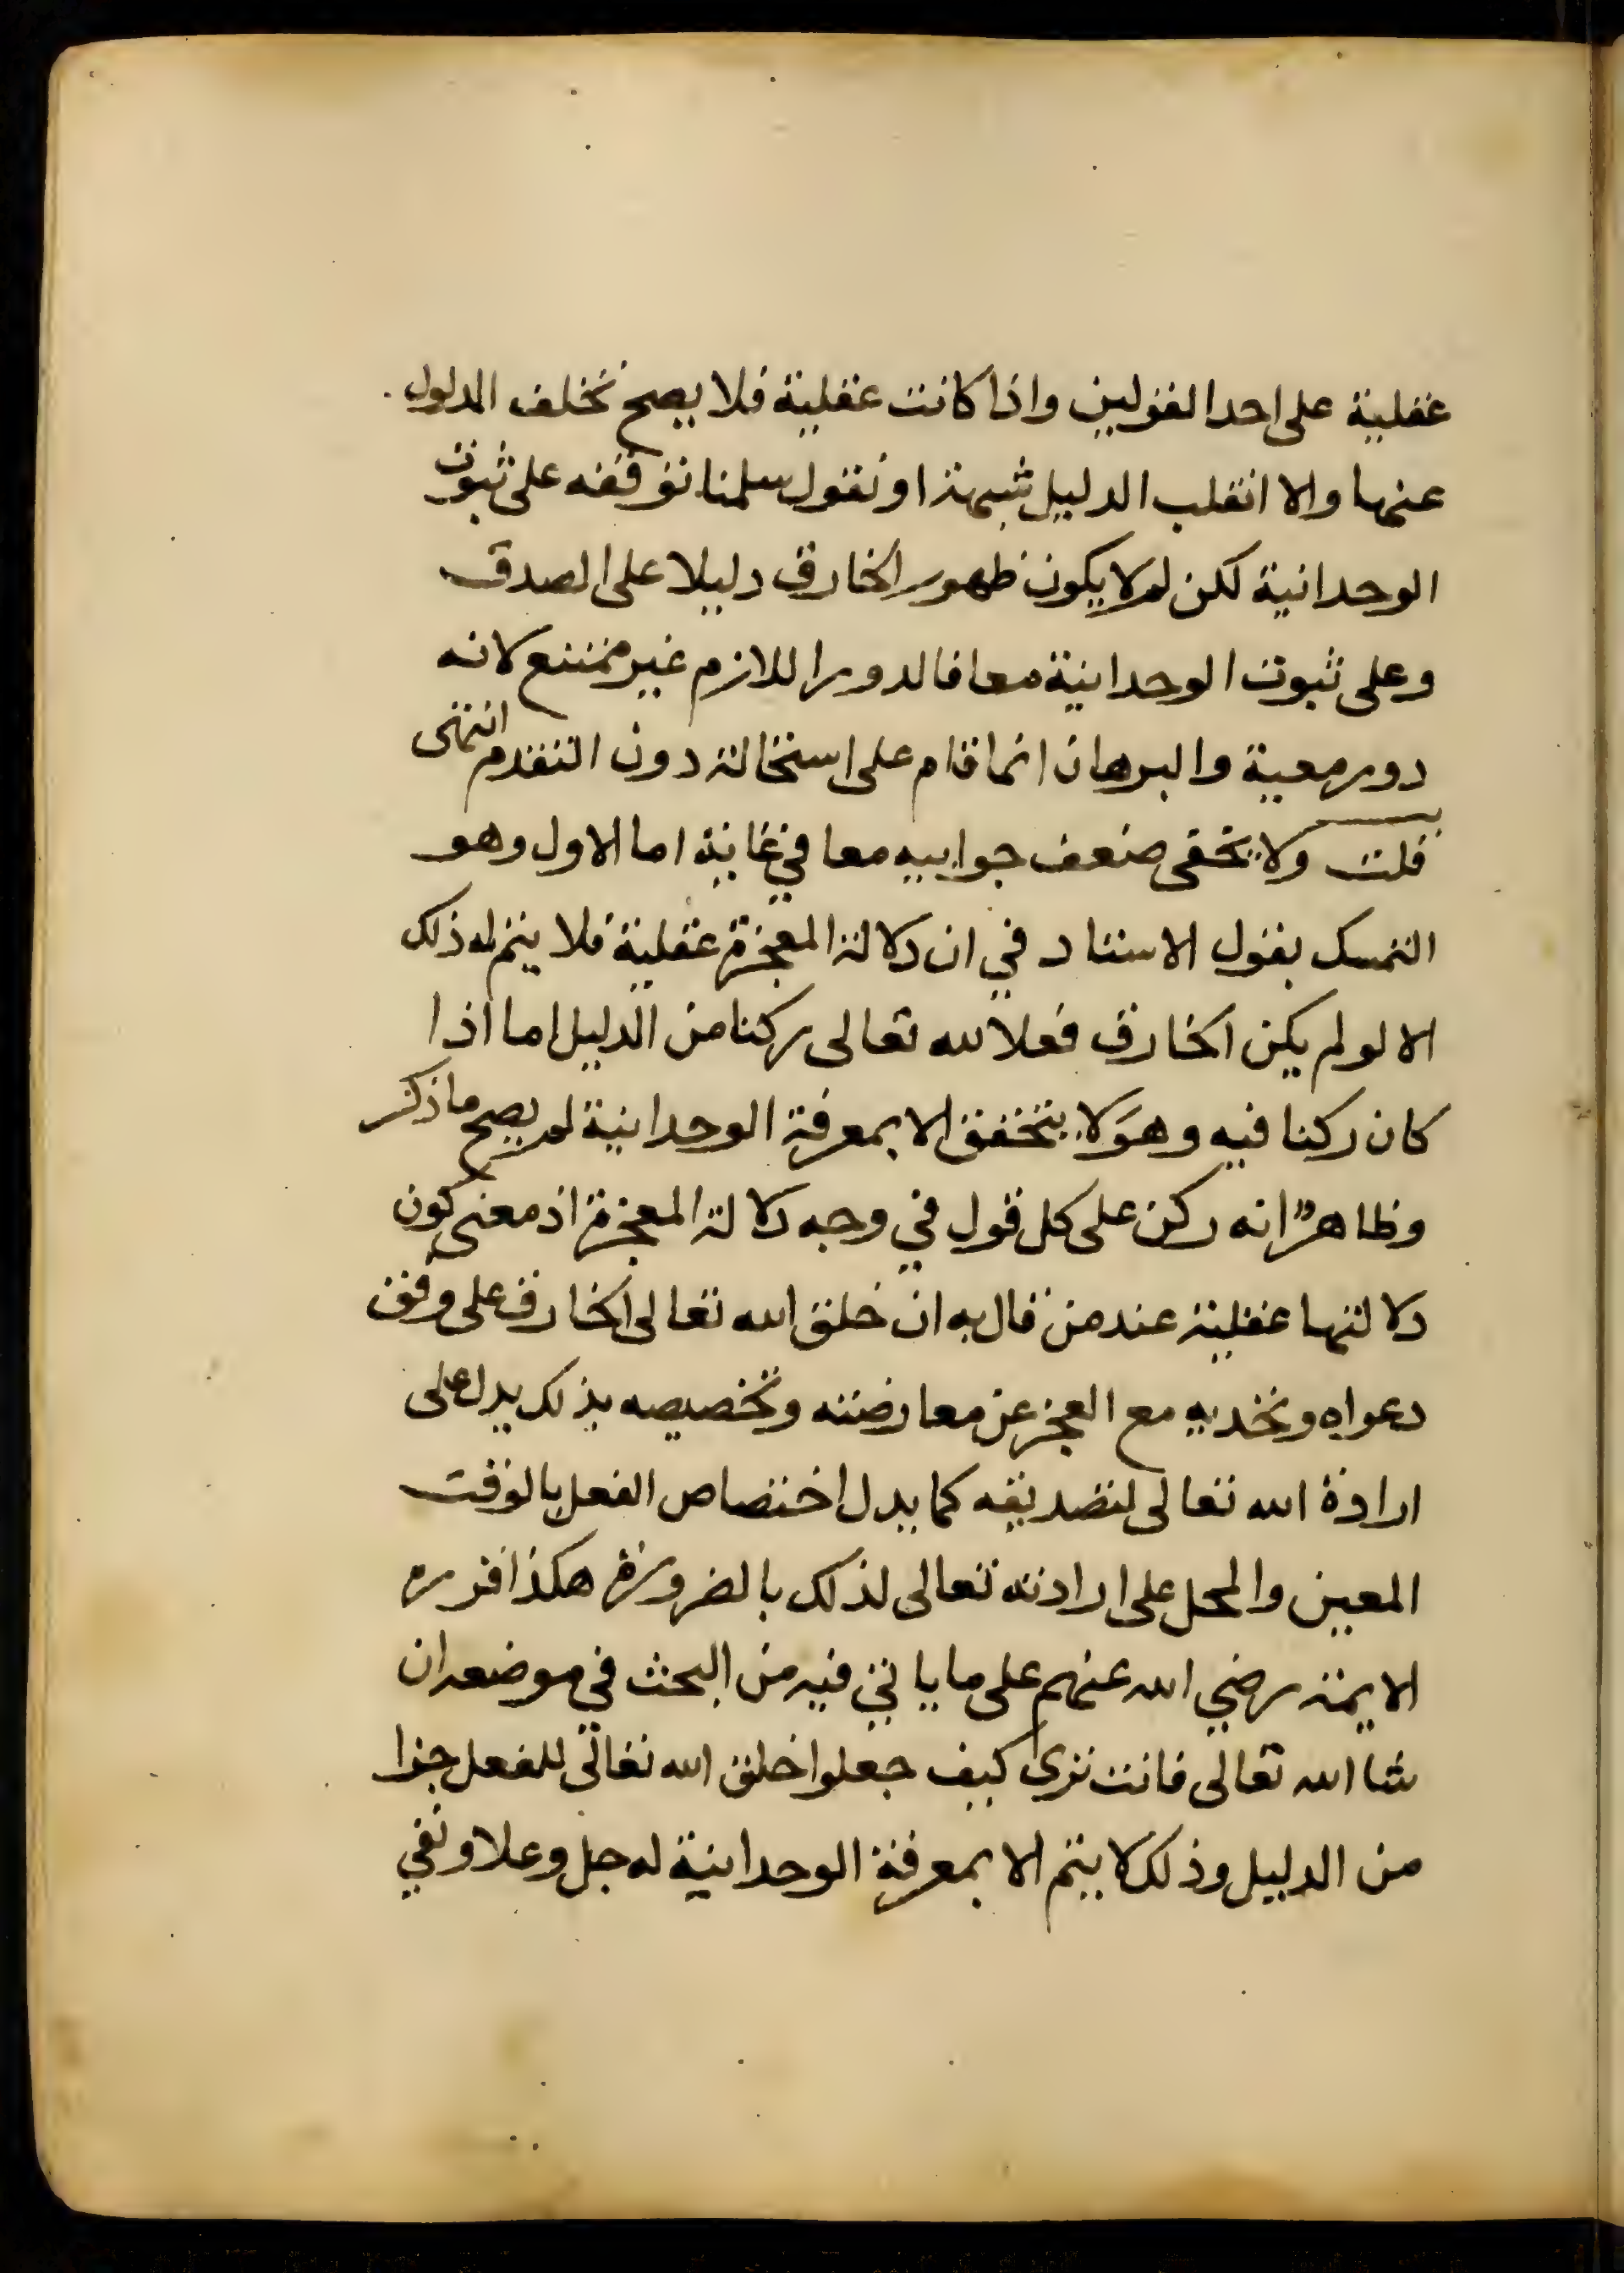 عقلية على احد القولين واذا كانت عقلية فلا يصح تخلف المدلول
عنها والا انقلب الدليل شبهة او نقول سلمنا توقفه على ثبوت
الوحدانية لكن لم لا يكون ظهور الخارق دليلا على الصدق
وعلى ثبوت الوحدانية معا فالدور اللازم غير ممتنع لانه
دور معية والبرهان انما قام على استحالة دور التقدم انتهى
قلت ولا يخفى ضعف جوابيه معا في غاية اما الاول وهو
التمسك بقول الاستاد في ان دلالة المعجزة عقلية فلا يتم له ذلك
الا لو لم يكن الخارق فعلا لله تعالى ركنا من الدليل اما اذا
كان ركنا فيه وهو لا يتحقق الا بمعرفة الوحدانية لم يصح ما ذكر
وظاهر انه ركن على كل قول في وجه دلالة المعجزة اذ معنى كون
دلالتها عقلية عند من قال به ان خلق الله تعالى الخارق على وفق
دعواه وتحديه مع العجز عن معارضته وتخصيصه بذلك يدل على
ارادة الله تعالى لتصديقه كما يدل اختصاص الفعل بالوقت
المعين والمحل على ارادته تعالى لذلك بالضرورة هكذا قرره
الايمة رضي الله عنهم على ما ياتي فيه من البحث في موضعه ان
شا الله تعالى فانت ترى كيف جعلوا خلق الله تعالى للفعل جزا
من الدليل وذلك لا يتم الا بمعرفة الوحدانية له جل وعلا ونفي